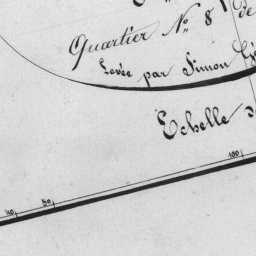 Quartier No. 8 de
Levée par Simon
Echelle
40 50 100